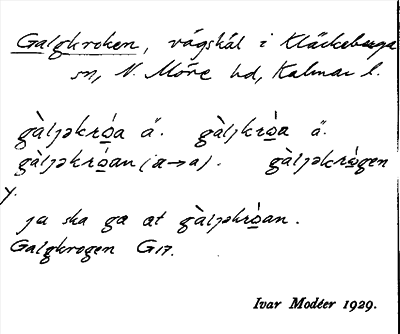 Galgkroken, vägskäl i Kläckeberga
sn, N. Möre hd, Kalmar l.
gàljəkrò̱a ä. gàljkrò̱a ä.
gàljəkrò̱an (a→a). gàljəkrò̱gen
y.
ja ska ga at gàljəkrò̱an.
Galgkrogen G17.
Ivar Modéer 1929.